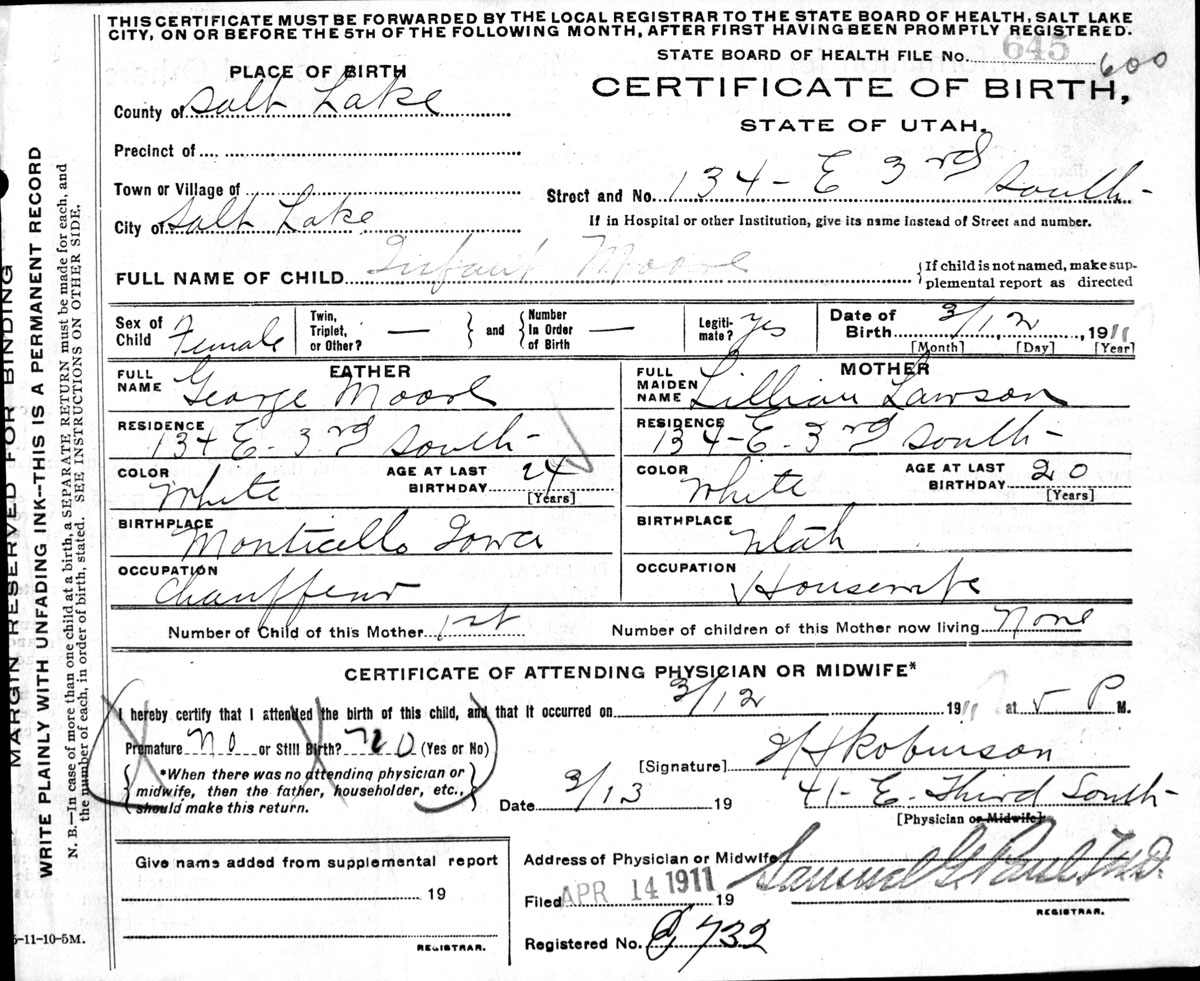 THIS CERTIFICATE MUST BE FORWARDED BY THE LOCAL REGISTRAR TO THE STATE BOARD OF HEALTH, SALT LAKE
CITY, ON OR BEFORE THE 5TH OF THE FOLLOWING MONTH, AFTER FIRST HAVING BEEN PROMPTLY REGISTERED.
STATE BOARD OF HEALTH FILE No. 645 600
PLACE OF BIRTH
CERTIFICATE OF BIRTH,
County of Salt Lake
STATE OF UTAH.
Precinct of
Town or Village of
Street and No. 134-E 3rd South-
City of Salt Lake
If in Hospital or other Institution, give its name instead of Street and number.
FULL NAME OF CHILD Infant Moore
{If child is not named, make sup-
plemental report as directed
Sex of Child Female
Twin, Triplet, or Other? —
and
Number In Order of Birth —
Legiti-mate? Yes
Date of Birth 3/12, 1911
[Month] [Day] [Year]
FATHER
FULL NAME George Moore
MOTHER
FULL MAIDEN NAME Lillian Lawson
RESIDENCE 134 E- 3rd South-
RESIDENCE 134-E- 3rd South-
COLOR White
AGE AT LAST BIRTHDAY 24 [Years]
COLOR White
AGE AT LAST BIRTHDAY 20 [Years]
BIRTHPLACE Monticello Iowa
BIRTHPLACE Utah
OCCUPATION Chauffeur
OCCUPATION Housewife
Number of Child of this Mother 1st
Number of children of this Mother now living None
CERTIFICATE OF ATTENDING PHYSICIAN OR MIDWIFE*
I hereby certify that I attended the birth of this child, and that it occurred on 3/12 1911 at 5 P M.
Premature No or Still Birth? No (Yes or No)
{*When there was no attending physician or
midwife, then the father, householder, etc.,
should make this return.}
[Signature] Robinson
Date 3/13 19
41- E. Third South-
[Physician or Midwife]
Give name added from supplemental report
19
REGISTRAR.
Address of Physician or Midwife
Samuel G. Paul M.D.
Filed APR 14 1911 19
REGISTRAR.
Registered No. 732
5-11-10-5M.
MARGIN RESERVED FOR BINDING
WRITE PLAINLY WITH UNFADING INK--THIS IS A PERMANENT RECORD
N. B.—In case of more than one child at a birth, a SEPARATE RETURN must be made for each, and
the number of each, in order of birth, stated. SEE INSTRUCTIONS ON OTHER SIDE.